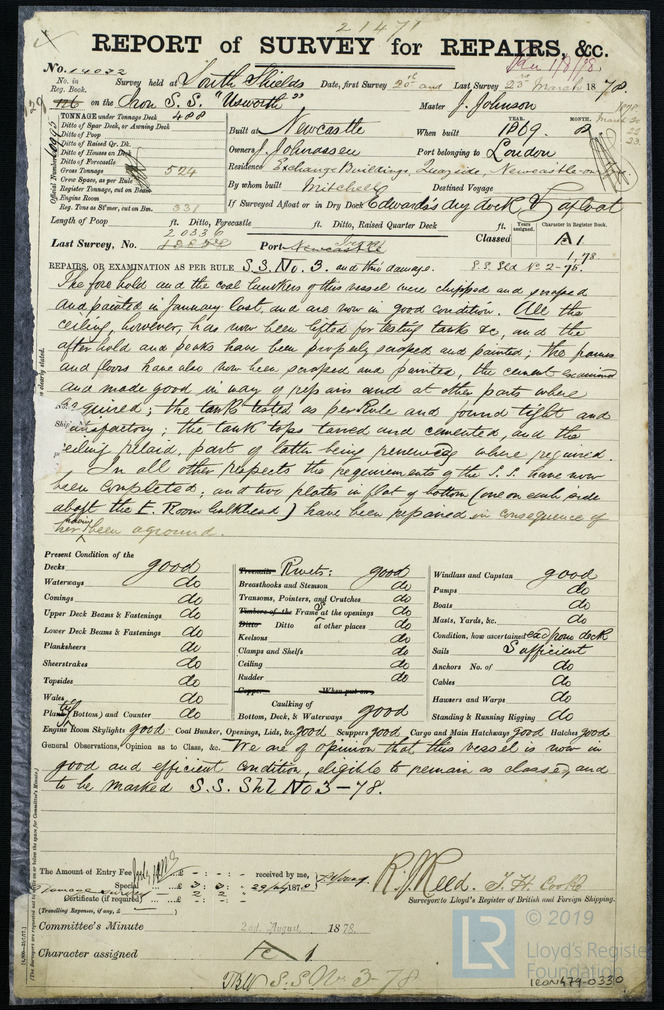 21471
REPORT of SURVEY for REPAIRS, &c.
No. 14022
No. in Reg. Book.
Survey held at South Shields Date, first Survey 20th and Last Survey 23rd March 1878.
on the Iron S.S. "Usworth" Master J. Johnson
TONNAGE under Tonnage Deck 488
Ditto of Spar Deck, or Awning Deck
Ditto of Poop
Ditto of Raised Qr. Dk.
Ditto of Houses on Deck
Ditto of Forecastle
Gross Tonnage 524
Crew Space, as per Rule
Register Tonnage, out on Beam
Engine Room
Reg. Tons as St'mer, out on Bm. 331
Official Number
Built at Newcastle When built YEAR. 1869. MONTH. 8
Owners J. Johnassen Port belonging to London
Residence Exchange Buildings, Quayside, Newcastle-on-
By whom built Mitchell Destined Voyage
If Surveyed Afloat or in Dry Dock Edward's dry dock & afloat
Length of Poop ft. Ditto, Forecastle ft. Ditto, Raised Quarter Deck ft.
Years assigned. Character in Register Book.
20336
Last Survey, No. Port Newcastle Classed A 1
1.78
REPAIRS, OR EXAMINATION AS PER RULE S.S. No. 3. and this damage. S.S. Sld No 2-75.
The fore hold and the coal bunkers of this vessel were chipped and scraped
and painted in January last, and are now in good condition. All the
ceiling, however, has now been lifted for testing tanks &c, and the
after hold and peaks have been properly scraped and painted; the frames
and floors have also now been scraped and painted, the cement examined
and made good in way of repairs and at other parts where
required; the tank tested as per Rule and found tight and
satisfactory; the tank tops tarred and cemented, and the
ceiling relaid, part of latter being renewed where required.
In all other respects the requirements of the S.S. have now
been completed; and two plates in flat of bottom (one on each side
abaft the E. Room bulkhead) have been repaired in consequence of
her having been aground.
Present Condition of the
Decks good
Waterways do
Comings do
Upper Deck Beams & Fastenings do
Lower Deck Beams & Fastenings do
Planksheers do
Sheerstrakes do
Topsides do
Wales do
Plating (Bottom) and Counter do
Treenails Rivets: good
Breasthooks and Stemson do
Transoms, Pointers, and Crutches do
Timbers of the Frames at the openings do
Ditto Ditto at other places do
Keelsons do
Clamps and Shelfs do
Ceiling do
Rudder do
Copper When put on
Caulking of
Bottom, Deck, & Waterways good
Windlass and Capstan good
Pumps do
Boats do
Masts, Yards, &c. do
Condition, how ascertained from deck
Sails Sufficient
Anchors No. of do
Cables do
Hawsers and Warps do
Standing & Running Rigging do
Engine Room Skylights good Coal Bunker, Openings, Lids, &c. good Scuppers good Cargo and Main Hatchways good Hatches good
General Observations, Opinion as to Class, &c. We are of opinion that this vessel is now in
good and efficient condition, eligible to remain as classed, and
to be marked S.S. Shl No 3-78.
The Amount of Entry Fee £ - : - : - received by me,
Special £ 3 : 3 : -
Damage survey
Certificate (if required)
(Travelling Expenses, if any, £ )
R. J. Reed. T. H. Cooke
Surveyors to Lloyd's Register of British and Foreign Shipping.
Committee's Minute 2nd August 1878.
Character assigned 1
S.S. No 3-78
LR
© 2019
Lloyd's Register
Foundation
IRON479-0330